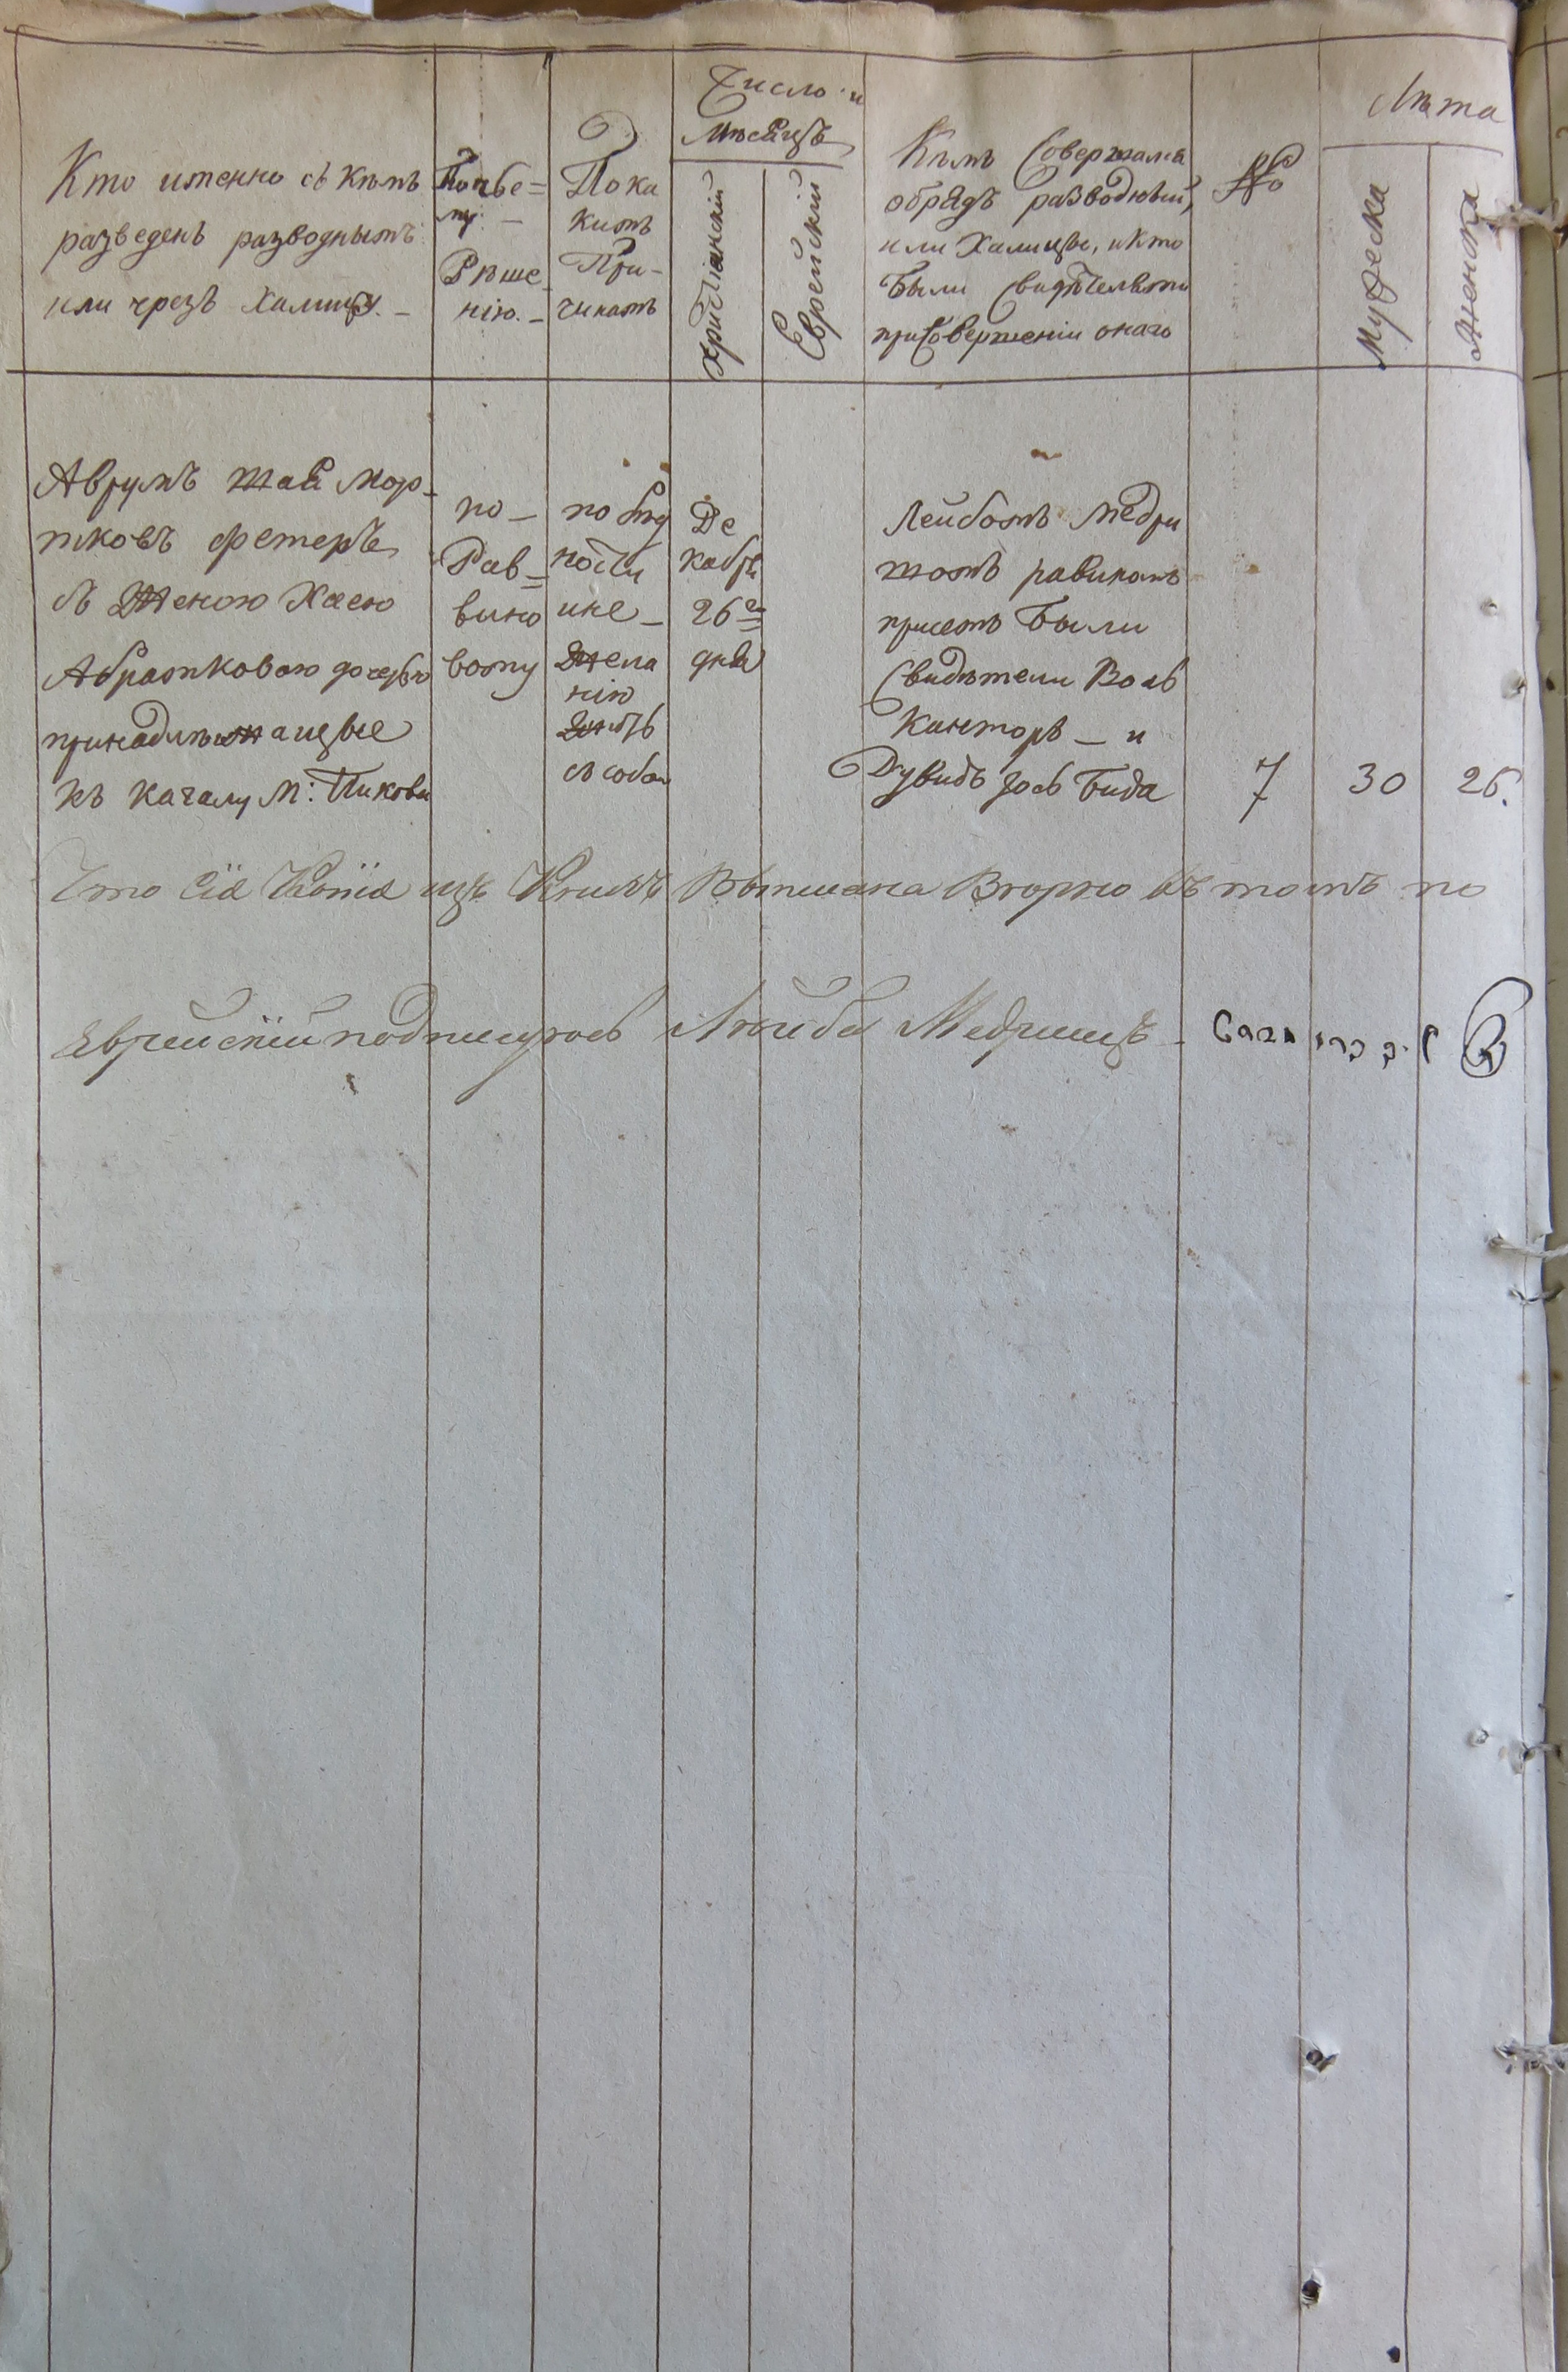 Число и
Мѣсяцъ
Лѣта
Кто именно съ кѣмъ
разведенъ разводнымъ
или чрезъ Халицу. –
По чье=
му –
Рѣше
нію. –
По ка
кимъ
При-
чинамъ
Христіанскій
Еврейскій
Кѣмъ Совершана
обрядъ разводной,
или Халицы, и кто
были Свидѣтельми
при Совершеніи онаго
№
Мужеска
Женска
Аврумъ Мор-
тковъ Фетеръ
съ Женою Хаею
Абрамковою дочерью
принадлежащые
къ кагалу М: Пикова
по –
Рав=
вино
вому
по бѣд
ности
и не –
Жела
нію
Жить
съ собою
Де
кабря
26го
дня
Лейбомъ Медри
шомъ равиномъ
при семъ были
Свидѣтели Воль
Канторъ – и
Дувидъ Іось Бида
7
30
26.
Что Сія Копія изъ Книгъ Выписана Вѣрно въ томъ по
Еврейскій подписуюсь Лейба Медришъ –